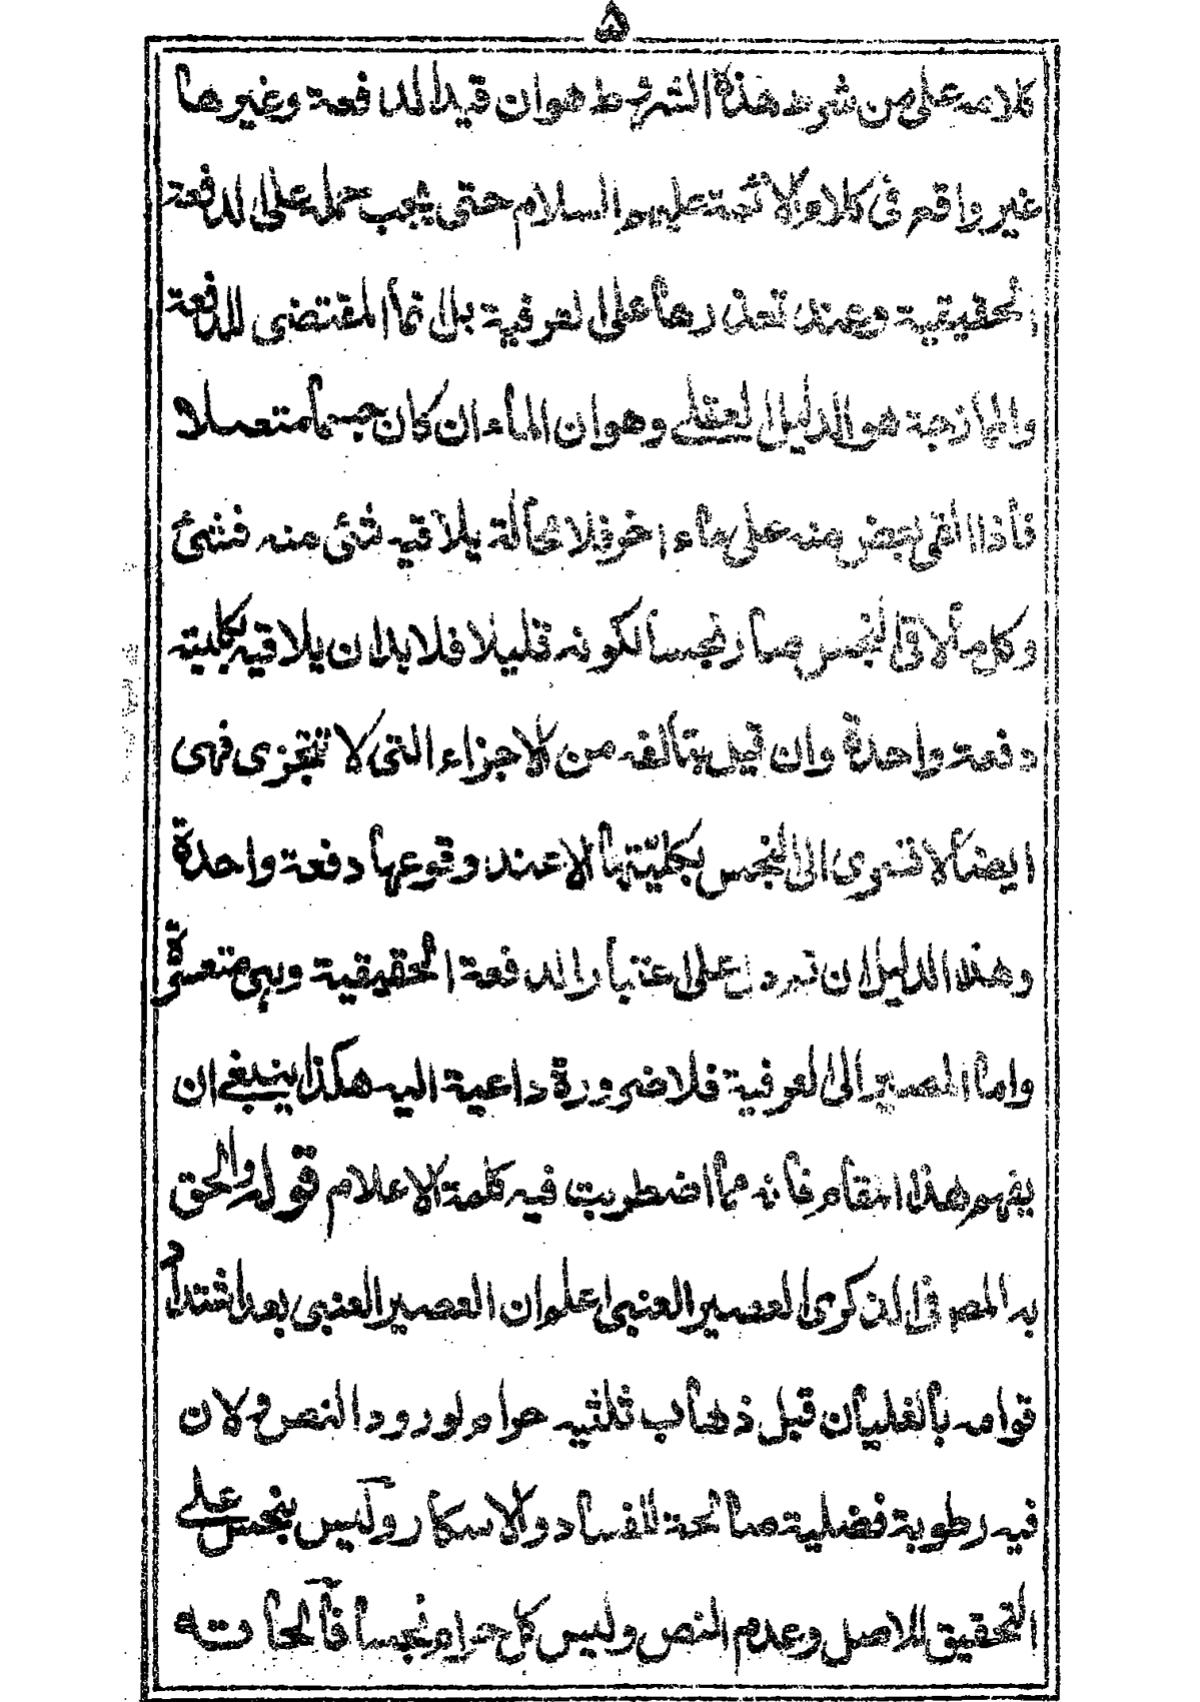 ۵
كلامه على من شرط هذة الشروط هو ان قيد الدفعة وغيرها
غير واقع فى كلام الائمة عليهم السلام حتى يجب حمله على الدفعة
الحقيقية وعند تعذرها على العرفية بل انما المقتضى للدفعة
والممازجة هو الدليل العقلے وهو ان الماء ان كان جسما متصلا
فاذا القى بعض منه على ماء اخر فلا محالة يلاقيه شئ منه فشئ
وكل ما لاقى النجس صار نجسا لكونه قليلا فلا بد ان يلاقيه بكليته
دفعة واحدة وان قيل بتألفه من الاجزاء التى لا تتجزى فهى
ايضا لا تسرى الى النجس بكليّتها الا عند وقوعها دفعة واحدة
وهذا الدليل ان تم دل على اعتبار الدفعة الحقيقية وهى متعسرة
واما المصير الى العرفية فلا ضرورة داعية اليه هكذا ينبغے ان
يفهم هذا المقام فانه مما اضطربت فيه كلمة الاعلام قوله والحق
به المص فى الذكرى العصير العنبى اعلم ان العصير العنبى بعد اشتداد
قوامه بالغليان قبل ذهاب ثلثيه حرام لورود النص و لان
فيه رطوبة فضلية صالحة للفساد والاسكار وليس بنجس علے
التحقيق للاصل وعدم النص وليس كل حرام نجسا فالحاقه